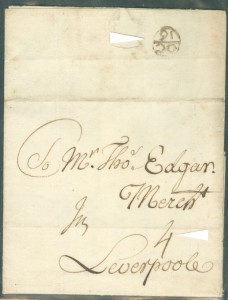 To Mr. Thos. Edgar.
Mercht
In
4
Leverpoole